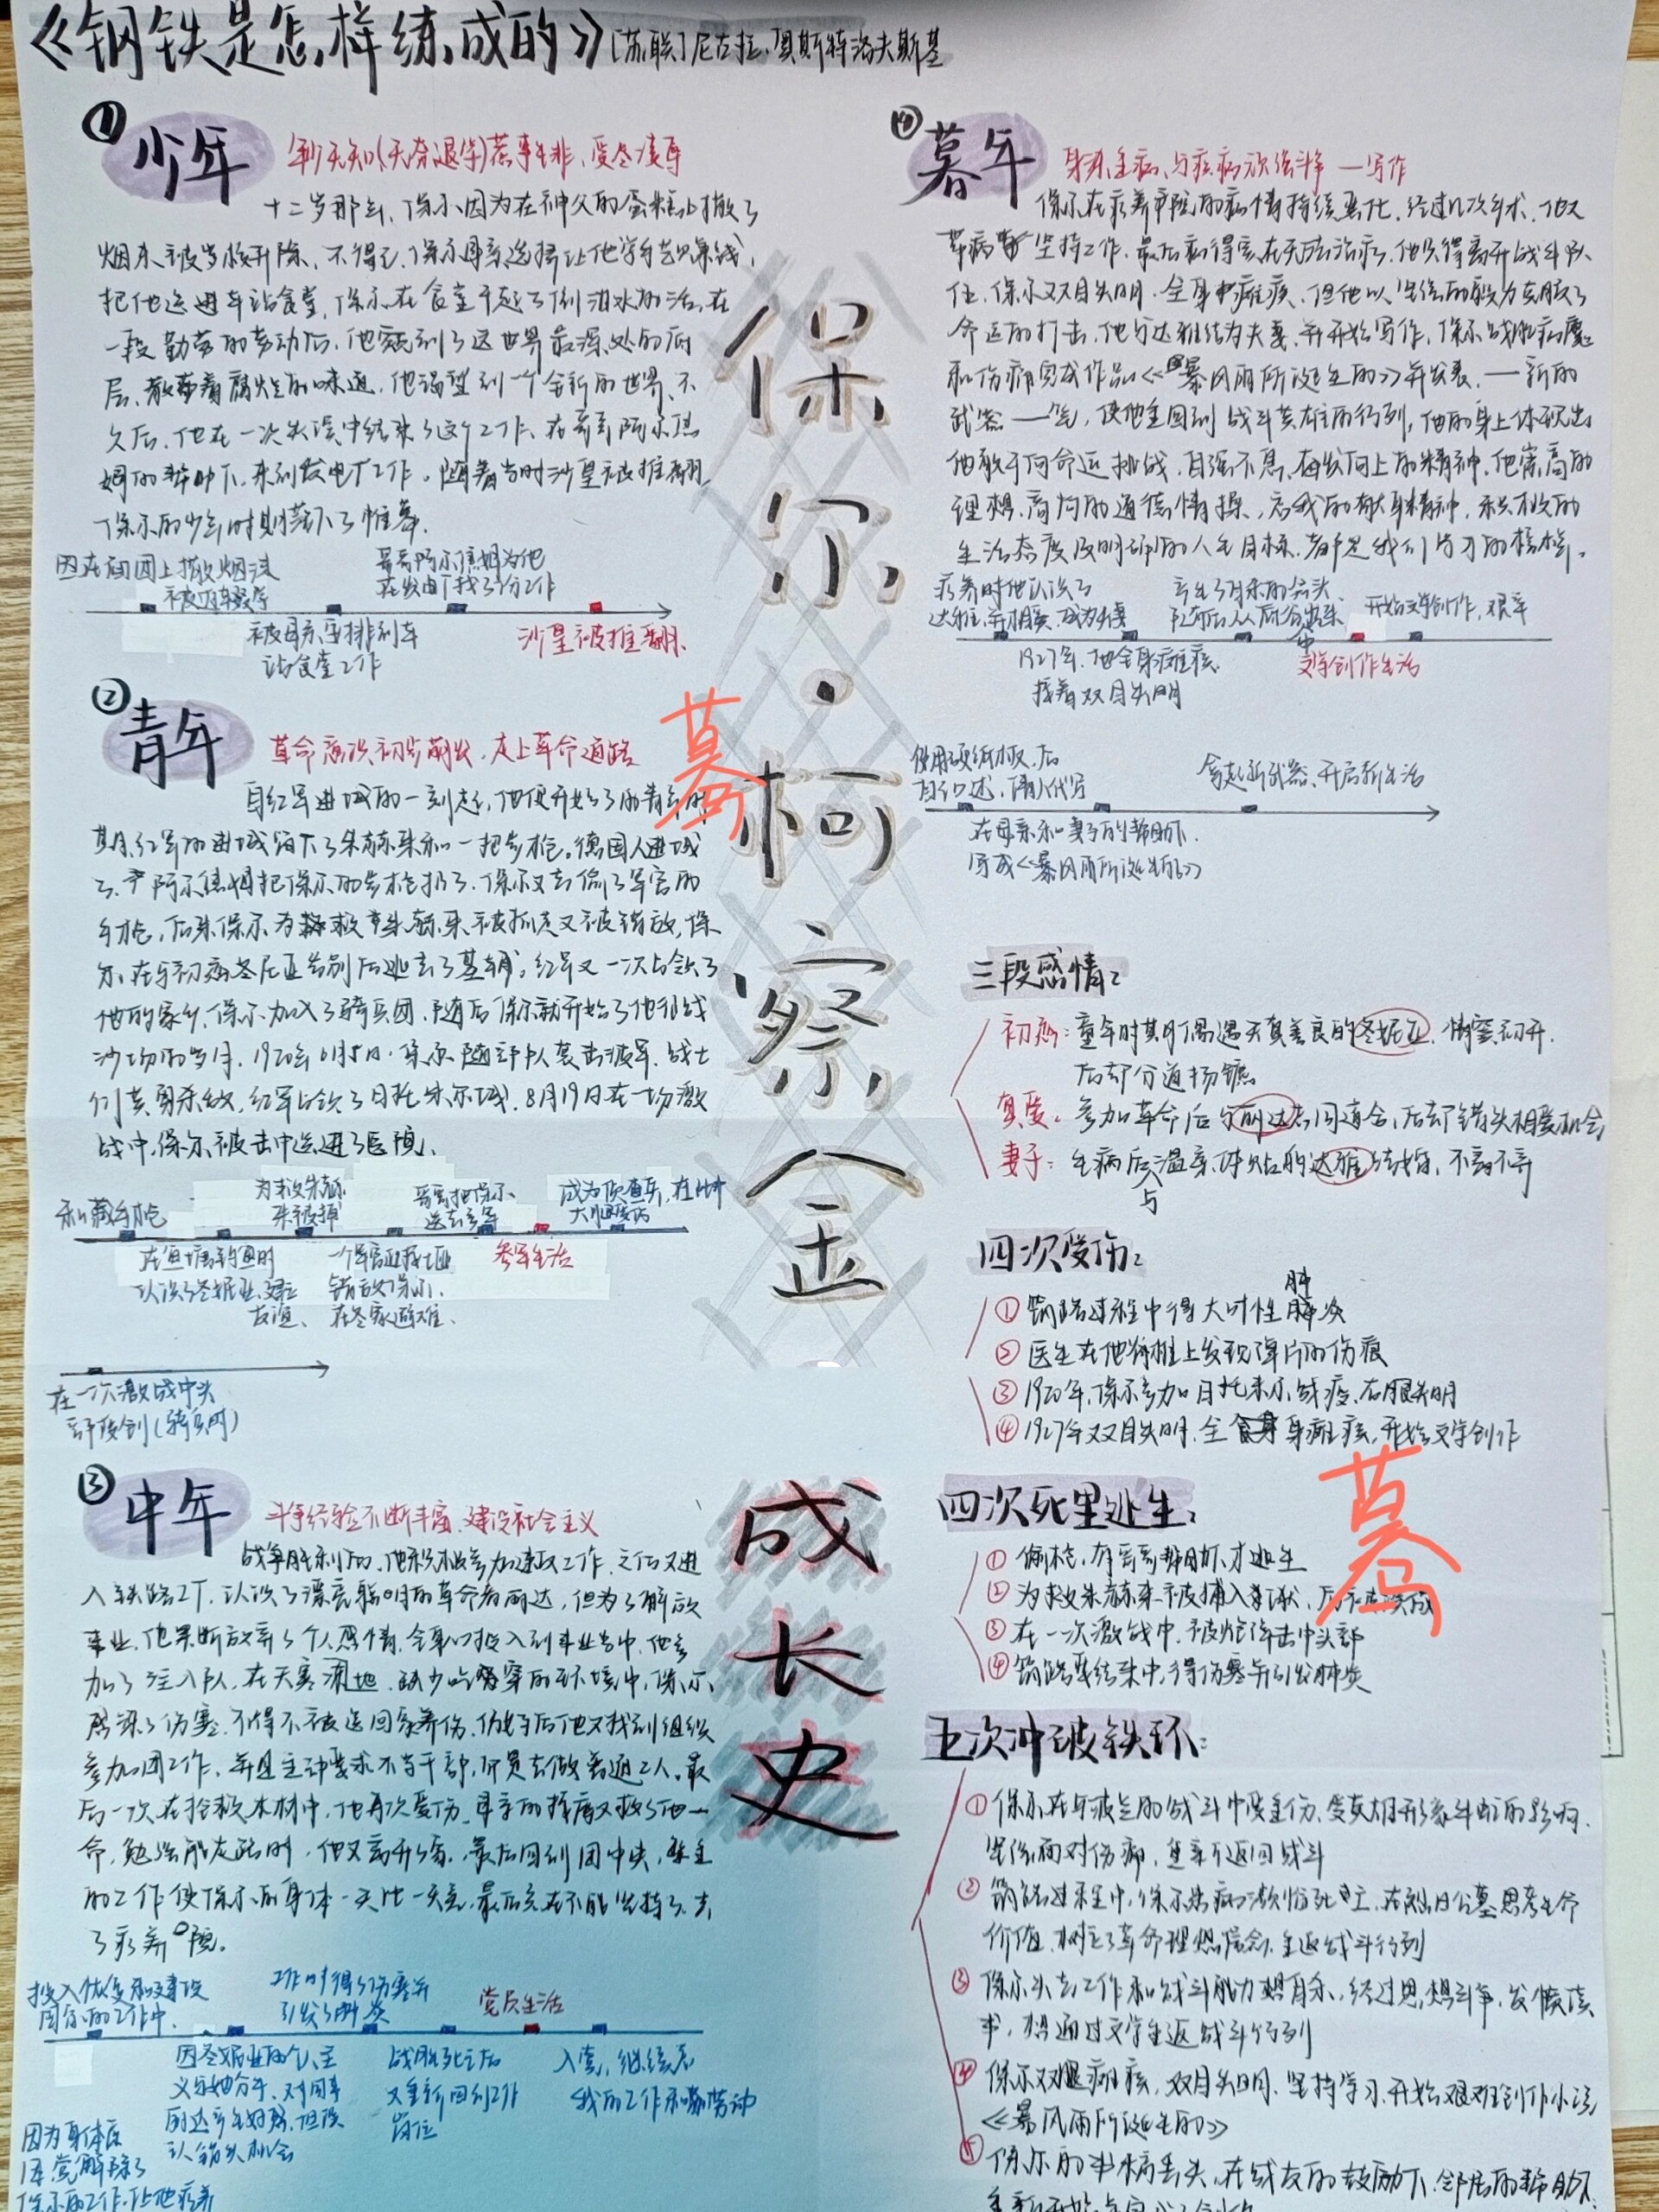 《钢铁是怎样练成的》[苏联]尼古拉·奥斯特洛夫斯基
① 少年
年少无知(无奈退学)惹事生非、受尽凌辱
十二岁那年、保尔因为在神父的蛋糕上撒了
烟末被学校开除、不得已、保尔母亲选择让他学手艺赚钱,
把他送进车站食堂,保尔在食堂干起了倒泔水的活,在
一段勤劳的劳动后,他窥到了这世界最深处的底
层,散发着腐烂的味道,他渴望到一个全新的世界、不
久后,他在一次失误中结束了这个工作、在哥哥阿尔焦
姆的帮助下,来到发电厂工作。随着当时沙皇被推翻,
保尔的少年时期落下了帷幕.
因在面团上撒烟沫
被 学
哥哥阿尔焦姆为他
在发电厂找了份工作
被母亲安排到车
站食堂工作
沙皇被推翻.
② 青年
革命意识初步萌发,走上革命道路
自红军进城的一刻起,他便开始了的青年时
期,红军的进城留下了朱赫来和一把步枪。德国人进城
了,阿尔焦姆把保尔的步枪扔了,保尔又去偷了军官的
手枪,后来保尔为拯救朱赫来被抓走又被错放,保
尔在与初恋冬尼亚告别后逃去了基辅。红军又一次占领了
他的家乡,保尔加入了骑兵团,随后保尔就开始了他征战
沙场的岁月,1920年6月5日,保尔随部队袭击波军,战士
们英勇杀敌,红军占领了日托米尔城,8月19日在一场激
战中,保尔被击中送进了医院.
私藏手枪
为救朱赫
来被捕
哥哥把保尔
送去参军
成为侦查兵,在
在鱼塘钓鱼时
认识了冬妮亚,建立
友谊、
一个军官
错放保尔、
在冬家避难、
参军生活
在一次激战中头
部受创(骑兵团)
③ 中年
斗争经验不断丰富、建设社会主义
战争胜利后,他积极参加建设工作,之后又进
入铁路工厂,认识了漂亮聪明的革命者丽达,但为了解放
事业,他果断放弃了个人恩情,全身心投入到事业当中,他参
加了 队,在天寒 地,缺少吃穿的环境中,保尔
感染了伤寒,不得不被送回家养伤,伤好后他又找到组织
参加团工作,并且主动要求不当干部,而是去做普通工人。最
后一次在抢救木材中,他再次受伤,母亲的 又救了他一
命,勉强能走路时,他又离开了家,最后回到团中央,繁重
的工作使保尔的身体一天比一天差,最后实在不能坚持了,去
了疗养院。
投入恢复和建设
国家的工作中.
工作时得了伤寒并
引发了肺炎
党员生活
因冬妮亚的个人主
义与她分手,对同事
丽达产生好感,但误
认错失机会
战胜死亡后
又重新回到工作
岗位
入党,继续忘
我的工作和劳动
因为身体原
因,党解除了
保尔的工作,让他疗养
保尔·柯察金
成长史
摹
④ 暮年
身染重病、与疾病顽强斗争 — 写作
保尔在疗养院的病情持续恶化,经过几次手术,他又
带病坚持工作,最后病得实在无法治疗,他只得离开战斗队
伍,保尔双目失明,全身瘫痪,但他以坚强的毅力克服了
命运的打击,他与达雅结为夫妻,并开始写作,保尔战胜病魔
和伤痛完成作品《暴风雨所诞生的》并发表,—新的
武器——笔,使他重回到战斗英雄的行列,他的身上体现出
他敢于向命运挑战,自强不息,奋发向上的精神,他崇高的
理想、高尚的道德情操,忘我的献身精神,积极的
生活态度及明确的人生目标,都是我们学习的榜样。
疗养时他认识了
达雅,并相爱,成为夫妻
辛
随
开始文学创作,艰辛
1927年,他全身瘫痪
接着双目失明
文学创作生活
使用硬纸板,后
自己口述,请人代写
拿起新武器,开启新生活
在母亲和妻子的帮助下.
写成《暴风雨所诞生的》
三段感情:
初恋:童年时期偶遇天真善良的冬妮亚,情窦初开,
后却分道扬镳
真爱:参加革命后与丽达志同道合,后却错失相爱机会
妻子:生病后与温柔体贴的达雅结婚,不离不弃
四次受伤:
① 筑路过程中得大叶性肺炎
② 医生在他脊椎上发现弹片的伤痕
③ 1920年,保尔参加日托米尔战疫,右眼失明
④ 1927年双目失明,全身瘫痪,开始文学创作
四次死里逃生:
① 偷枪,有哥哥帮助下才逃生
② 为救朱赫来被捕入狱,后被误放
③ 在一次激战中,被炮弹击中头部
④ 筑路要结束中,得伤寒并引发肺炎
摹
五次冲破铁环:
① 保尔在与波兰的战斗中受重伤,受英雄形象牛虻的影响,
坚强面对伤痛,重新返回战斗
② 筑路过程中,保尔患病濒临死亡,在烈士公墓思考生命
价值,树立了革命理想信念,重返战斗行列
③ 保尔失去工作和战斗能力想自杀,经过思想斗争,发愤读
书,想通过文学重返战斗行列
④ 保尔双腿瘫痪,双目失明,坚持学习,开始艰难创作小说
《暴风雨所诞生的》
⑤ 保尔的书稿丢失,在战友的鼓励下、邻居的帮助下,